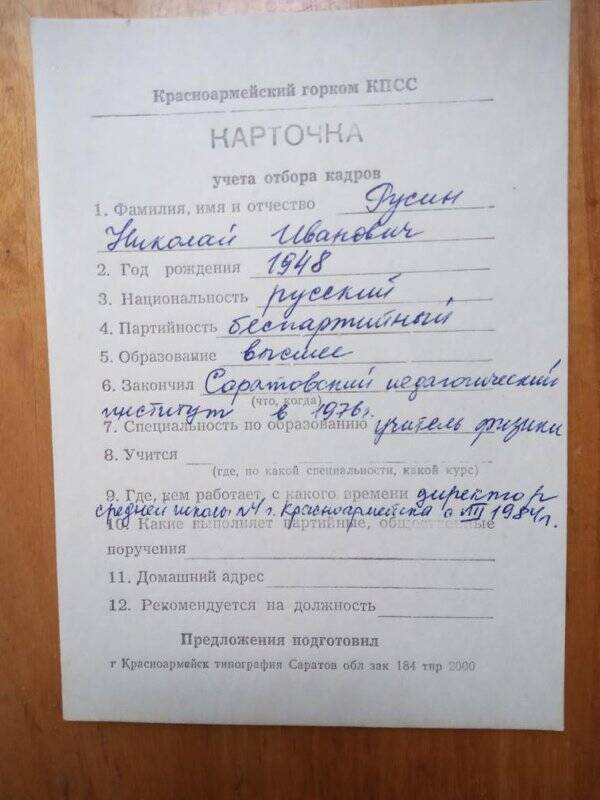 Красноармейский горком КПСС
КАРТОЧКА
учета отбора кадров
1. Фамилия, имя и отчество Русин
Николай Иванович
2. Год рождения 1948
3. Национальность русский
4. Партийность беспартийный
5. Образование высшее
6. Закончил Саратовский педагогический
(что, когда)
институт в 1976 г.
7. Специальность по образованию учитель физики
8. Учится
(где, по какой специальности, какой курс)
9. Где, кем работает, с какого времени директор
средней школы №4 г. Красноармейска с 1984 г.
10. Какие выполняет партийные, общественные
поручения
11. Домашний адрес
12. Рекомендуется на должность
Предложения подготовил
г Красноармейск типография Саратов обл зак 184 тир 2000